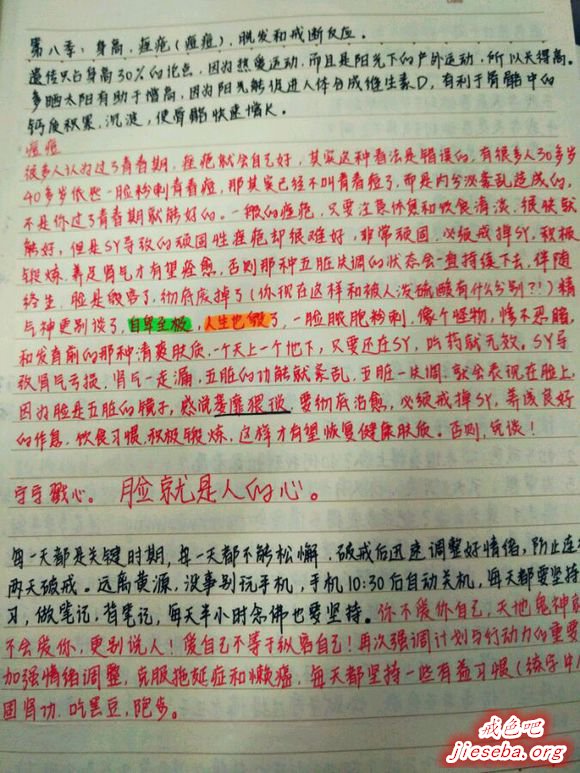 第八季：身高，痤疮（痘痘），脱发和戒断反应。
遗传只占身高30%的比点，因为热爱运动，而且是阳光下的户外运动，所以关得高。
多晒太阳有助于增高，因为阳光能促进人体合成维生素D，有利于骨骼中的
钙质积累，沉淀，使骨骼快速增长。
痘痘
很多人认为过了青春期，痤疮就会自己好，其实这种看法是错误的，有很多人30多岁
40多岁依然一脸粉刺青春痘，那其实已经不叫青春痘了，而是内分泌紊乱造成的，
不是你过了青春期就能好的。一般的痤疮，只要注意休息和饮食清淡，很快就
能好，但是SY导致的顽固性痤疮却很难好，非常顽固，必须戒掉SY，积极
锻炼，养足肾气才有望痊愈，否则那种五脏失调的状态会一直持续下去，伴随
终生，脸是毁容了，彻底废掉了（你现在这样和被人泼硫酸有什么分别？！）精
气神更别谈了，自卑至极，人生也毁了，一脸脓胞粉刺，像个怪物，惨不忍睹，
和发育前的那种清爽肤质，一个天上一个地下，只要还在SY，吃药就无效。SY导
致肾气亏损，肾气一走漏，五脏的功能就紊乱，五脏一失调，就会表现在脸上，
因为脸是五脏的镜子，感觉萎靡猥琐，要彻底治愈，必须戒掉SY，养成良好
的作息，饮食习惯，积极锻炼，这样才有望恢复健康肤质。否则，免谈！
字字戳心。 脸就是人的心。
每一天都是关键时期，每一天都不能松懈，破戒后迅速调整好情绪，防止连续
两天破戒。远离黄源，没事别玩手机，手机10:30后自动关机，每天都要坚持
习，做笔记，背笔记，每天半小时念佛也要坚持。你不爱你自己，天地鬼神
不会爱你，更别说人！爱自己不等于纵容自己！再次强调计划与行动力的重要
加强情绪调整，克服拖延症和懒癌，每天都坚持一些有益习惯（练字中
固肾功，吃黑豆，跑步。
戒色吧
jieseba.org